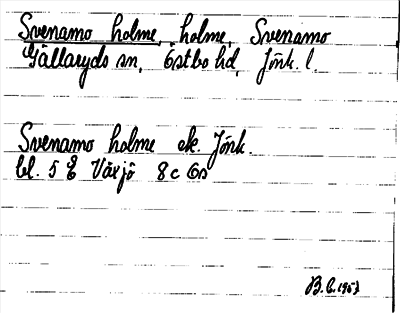 Svenamo holme, holme, Svenamo
Gällaryds sn, Östbo hd, Jönk. l.
Svenamo holme ek. Jönk.
bl. 5 E Växjö 8 c
B.E. 1967